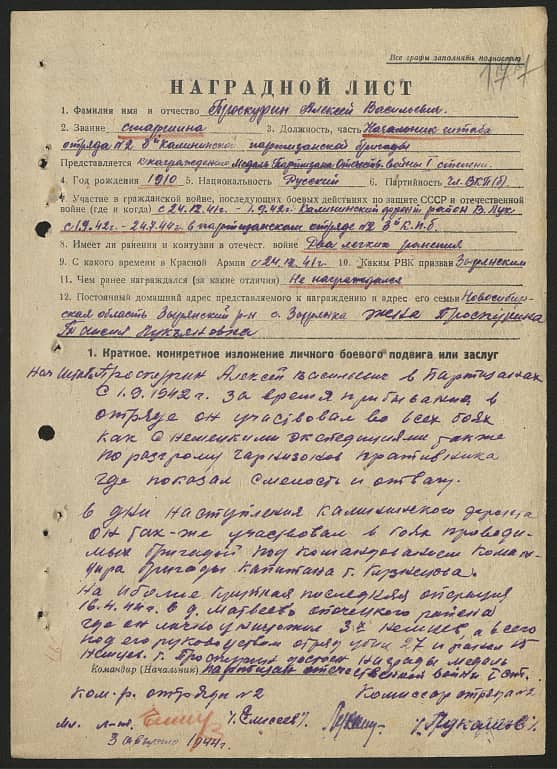 Все графы заполнять полностью
177
НАГРАДНОЙ ЛИСТ
1. Фамилия имя и отчество Проскурин Алексей Васильевич.
2. Звание старшина 3. Должность, часть Начальник штаба
отряда №2 Калининской партизанской бригады
Представляется к награждению Медаль "Партизана Отечеств. войны" I степени.
4. Год рождения 1910 5. Национальность Русский 6. Партийность Чл. ВКП(б)
4. Участие в гражданской войне, последующих боевых действиях по защите СССР и отечественной
войне (где и когда) с 24.12.41г. - 1.9.42г. Калининский фронт район В. Лук
с 1.9.42г. - 24.7.44г. в партизанском отряде №2 3й К.п.б.
8. Имеет ли ранения и контузии в отечест. войне Два легких ранения
9. С какого времени в Красной Армии с 24.12.41г. 10. Каким РВК призван Зырянским
11. Чем ранее награжден (за какие отличия) Не награждался
12. Постоянный домашний адрес представляемого к награждению и адрес его семьи Новосибир-
ская область Зырянский р-н с. Зырянка жена Проскурина
Таисия Лукьяновна
1. Краткое, конкретное изложение личного боевого подвига или заслуг
Нач. штаба Проскурин Алексей Васильевич в партизанах
с 1.9.1942г. за время прибывания в
отряде он участвовал во всех боях
как с немецкими экспедициями, также
по разгрому гарнизонов противника
где показал смелость и отвагу.
В дни наступления Калининского фронта
он так-же участвовал в боях проводи-
мых бригадой под командованием Коман-
дира бригады капитана т.
На иболее крупная последняя операция
16.4.44г. в д. Матвеево опочецкого района
где он лично уничтожил 3х немцев, а всего
под его руководством отряд убил 27 и ранил 15
немцев. т. Проскурин достоин награды медаль
Командир (Начальник) партизан отечественной войны I ст.
ком-р. отряда №2 Комиссар отряда №2
мл. л-т. /Елисеев/. /Лукашов/.
3 августа 1944г.